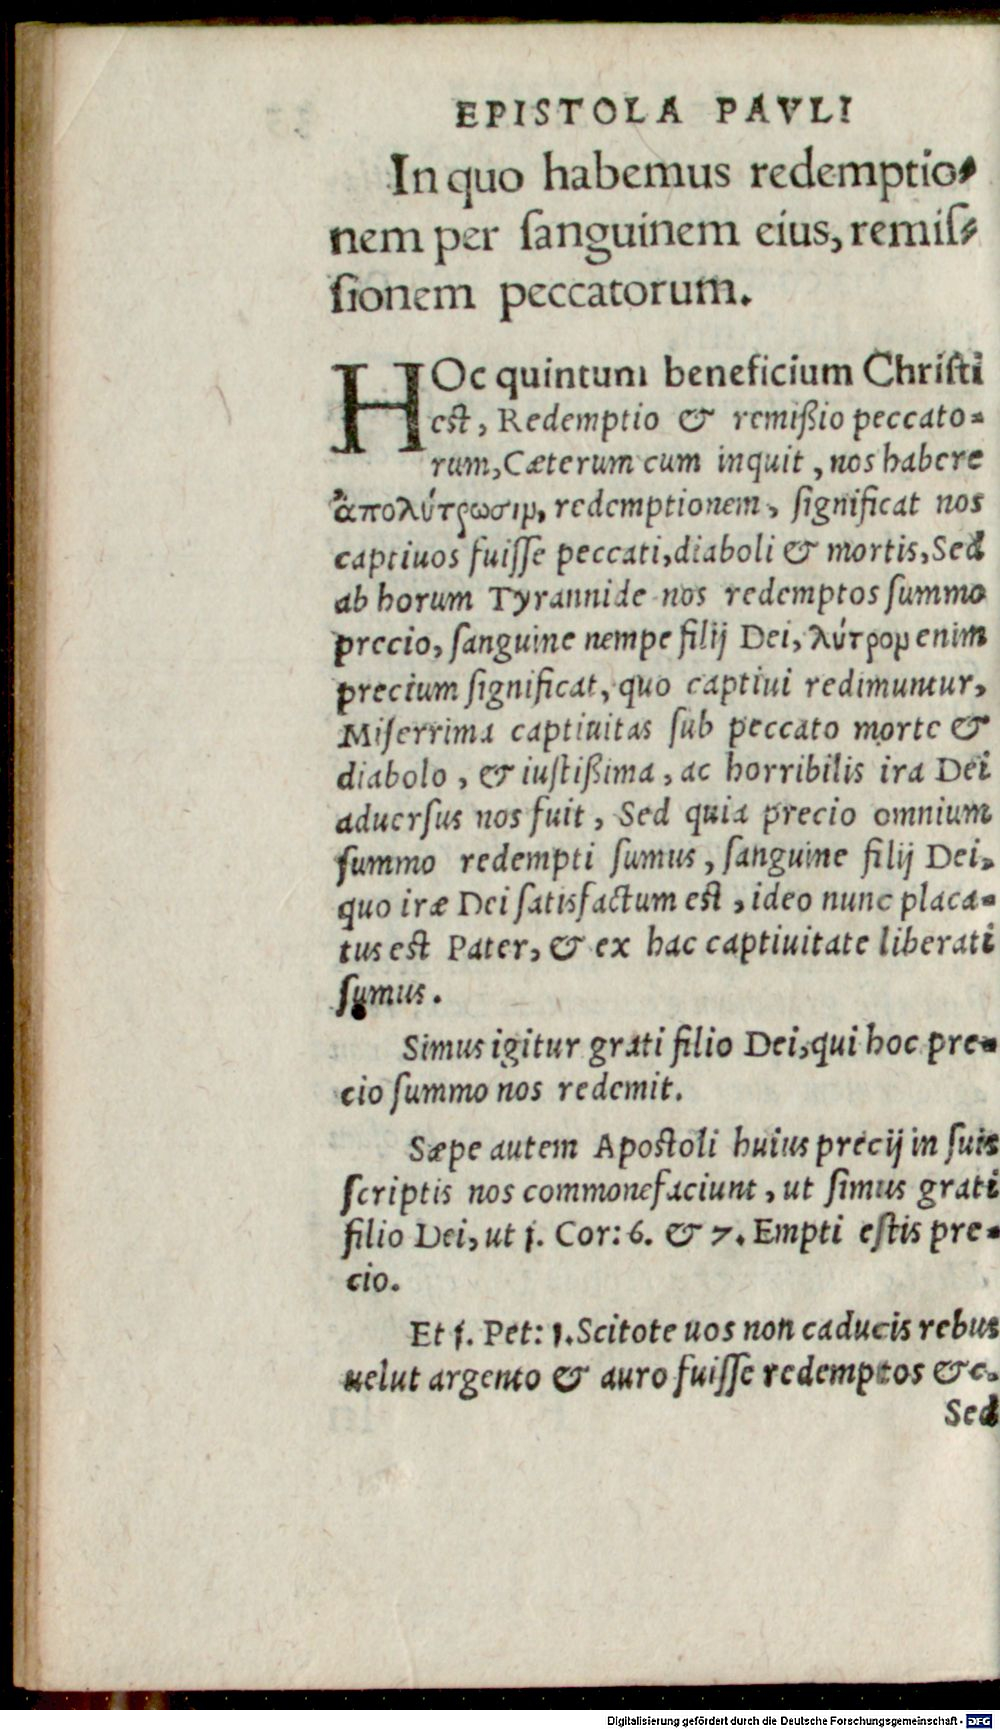 EPISTOLA PAVLI
In quo habemus redemptio-
nem per ſanguinem eius, remiſ-
ſionem peccatorum.
HOc quintum beneficium Chriſti
eſt, Redemptio & remißio peccato-
rum, Cæterum cum inquit, nos habere
ἀπολύτρωσιμ, redemptionem, ſignificat nos
captiuos fuiſſe peccati, diaboli & mortis, Sed
ab horum Tyrannide nos redemptos ſummo
precio, ſanguine nempe filij Dei, λύτρομ enim
precium ſignificat, quo captiui redimuntur,
Miſerrima captiuitas ſub peccato morte &
diabolo, & iuſtißima, ac horribilis ira Dei
aduerſus nos fuit, Sed quia precio omnium
ſummo redempti ſumus, ſanguine filij Dei,
quo iræ Dei ſatisfactum eſt, ideo nunc placa-
tus eſt Pater, & ex hac captiuitate liberati
ſumus.
Simus igitur grati filio Dei, qui hoc pre-
cio ſummo nos redemit.
Sæpe autem Apoſtoli huius precij in ſuis
ſcriptis nos commonefaciunt, ut ſimus grati
filio Dei, ut 1. Cor: 6. & 7. Empti eſtis pre-
cio.
Et 1. Pet: 1. Scitote uos non caducis rebus
uelut argento & auro fuiſſe redemptos &c.
Sed
Digitalisierung gefördert durch die Deutsche Forschungsgemeinschaft - DFG